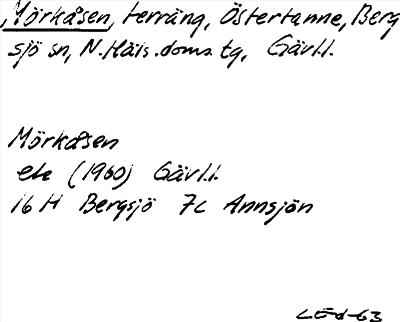 Mörkåsen, terräng, Östertanne, Berg
sjö sn, N. Häls. doms. tg, Gävl.l.
Mörkåsen
ek (1960) Gävl.l.
16 H Bergsjö 7c Annsjön
LEd-63